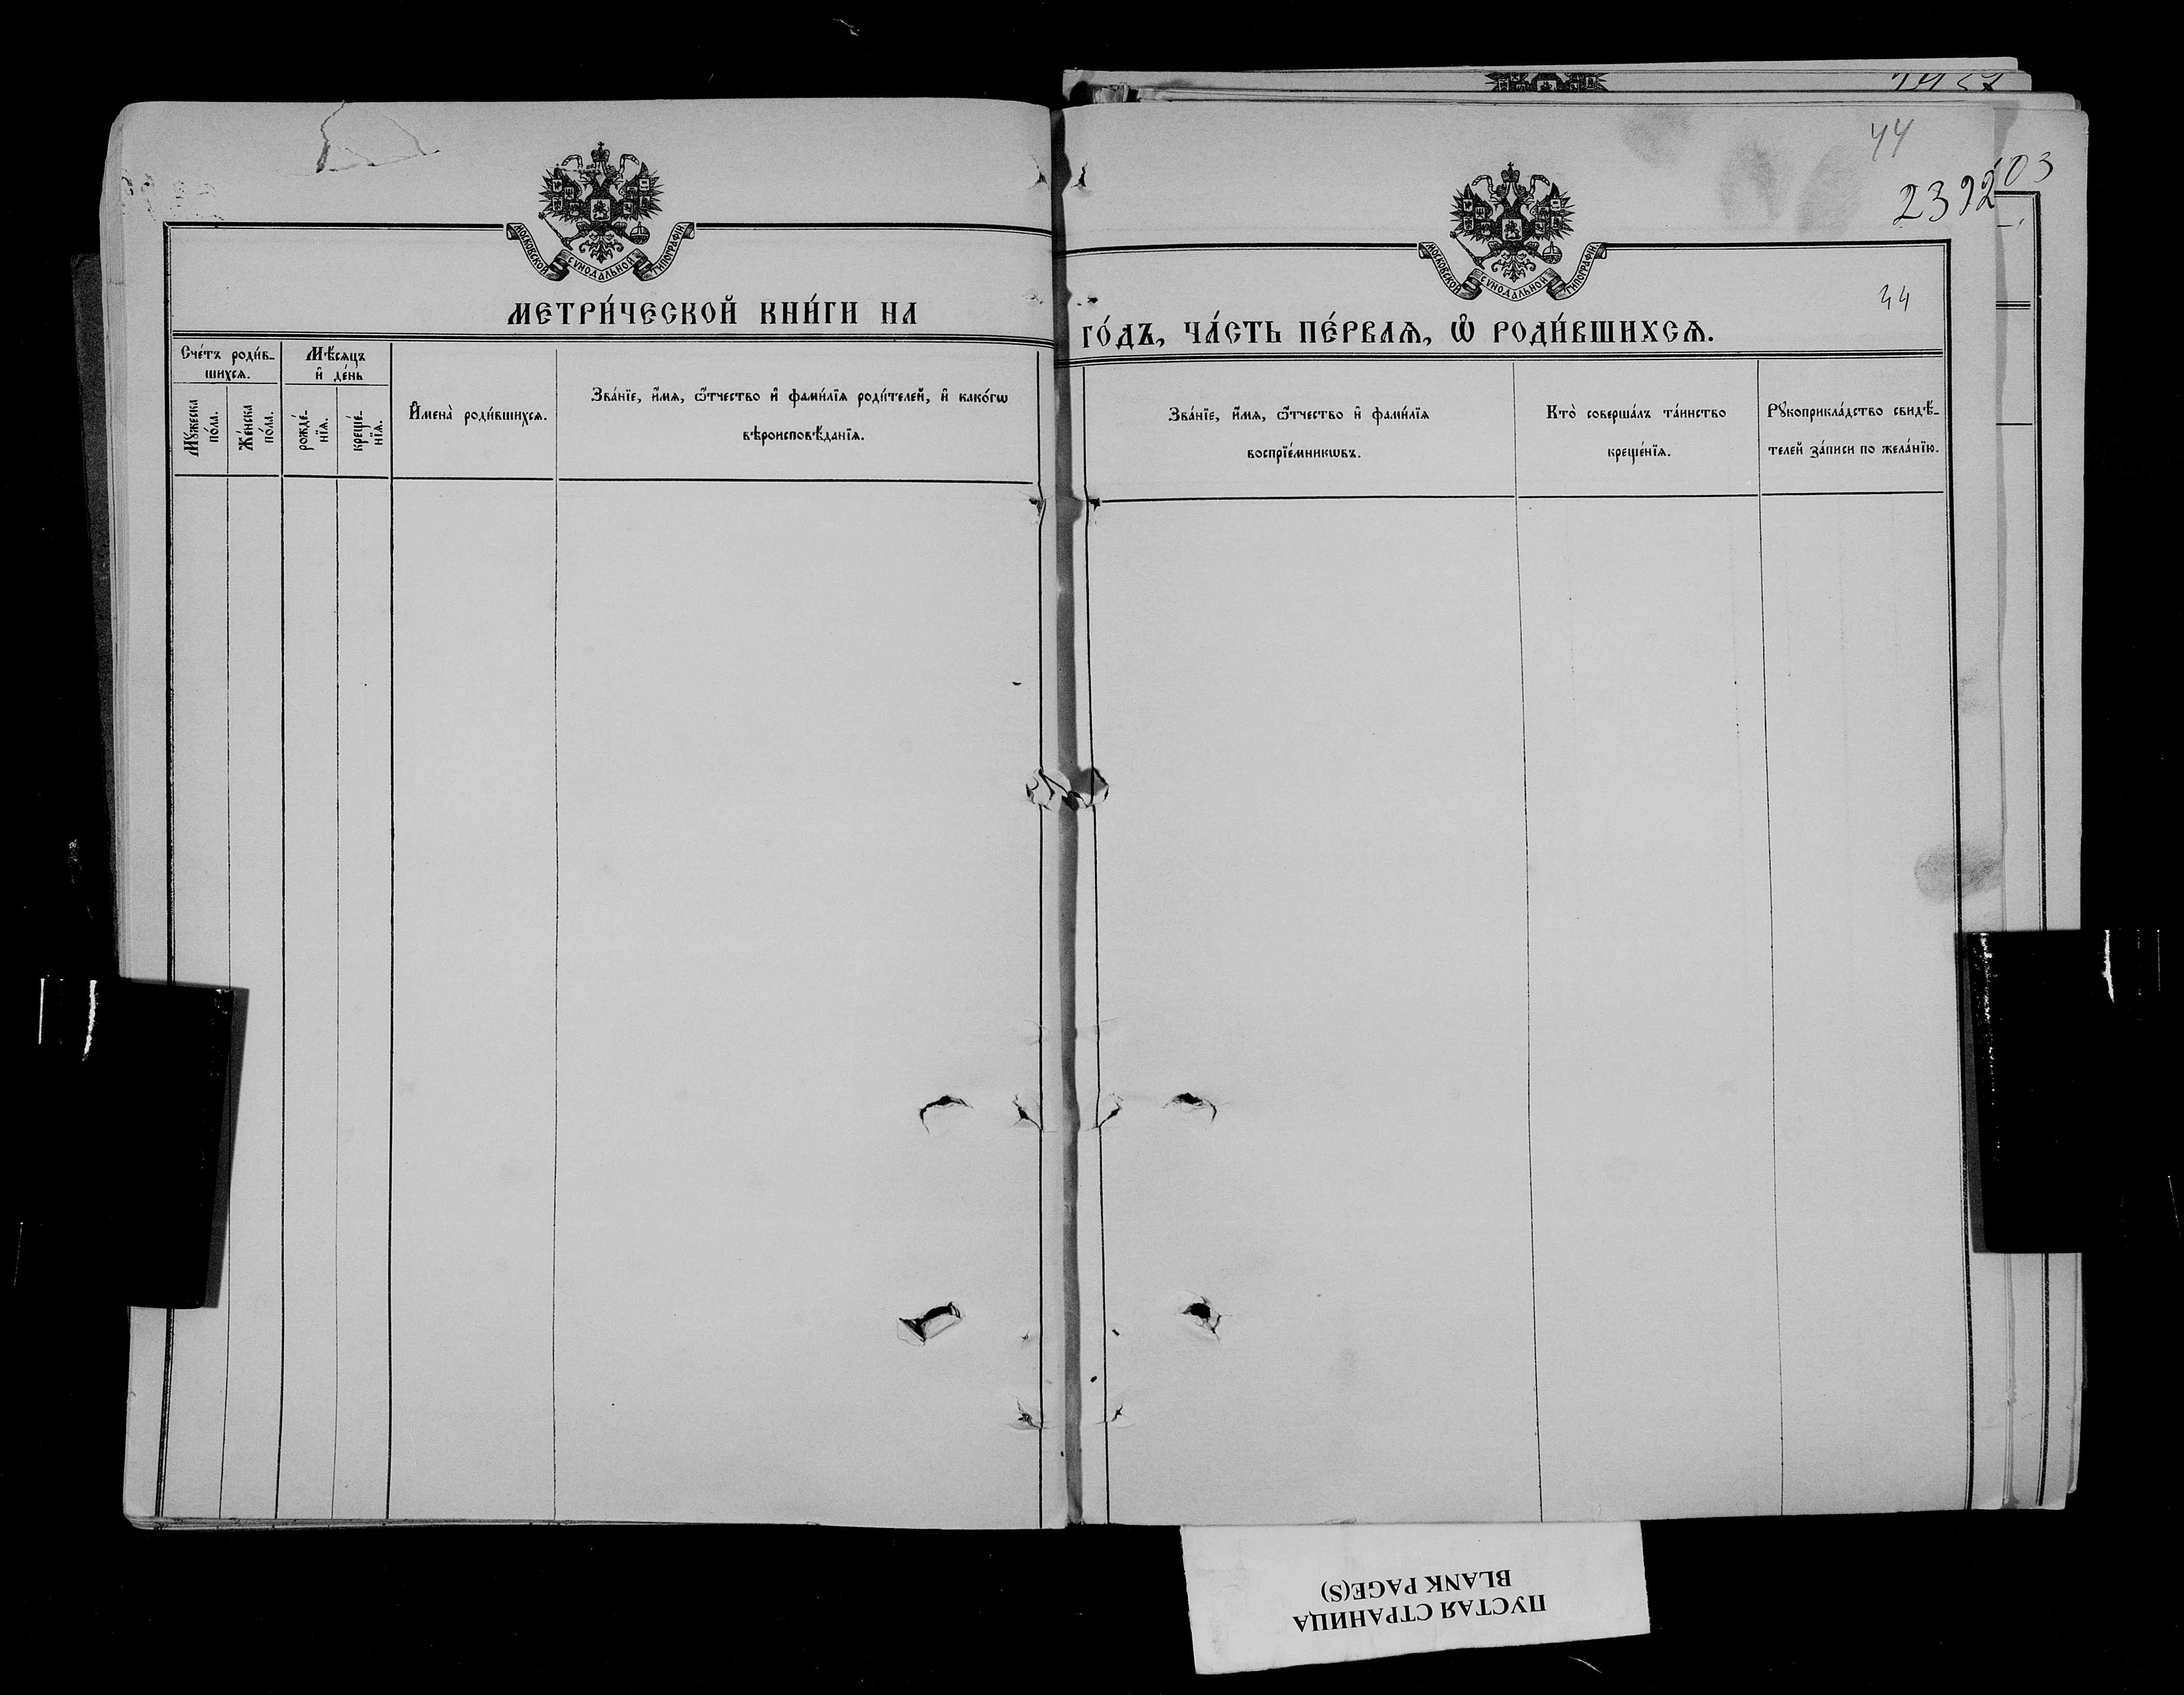 МОСКОВСКОЙ СѴНОДАЛЬНОЙ ТИПОГРАФІИ
МЕТРИ́ЧЕСКОЙ КНИ́ГИ НА
Сче́тъ роди́в-
шихсѧ.
Мѣ́сѧцъ
и҆ де́нь
Мꙋ́жеска
по́ла.
Же́нска
по́ла.
рожде́-
нїѧ.
креще́-
нїѧ.
И҆мена̀ роди́вшихсѧ.
Зва́нїе, и҆́мѧ, ѻ҆́тчество и҆ фами́лїѧ роди́телей, и҆ како́гѡ
вѣроисповѣ́данїѧ.
44
2392
03
МОСКОВСКОЙ СѴНОДАЛЬНОЙ ТИПОГРАФІИ
44
ГО́ДЪ, ЧА́СТЬ ПЕ́РВАѦ, Ѡ҆ РОДИ́ВШИХСѦ.
Зва́нїе, и҆́мѧ, ѻ҆́тчество и҆ фами́лїѧ
воспрїе́мникѡвъ.
Кто̀ соверша́лъ та́инство
креще́нїѧ.
Рꙋкоприкла́дство свидѣ́-
телей за́писи по жела́нїю.
ПУСТАЯ СТРАНИЦА
BLANK PAGE(S)